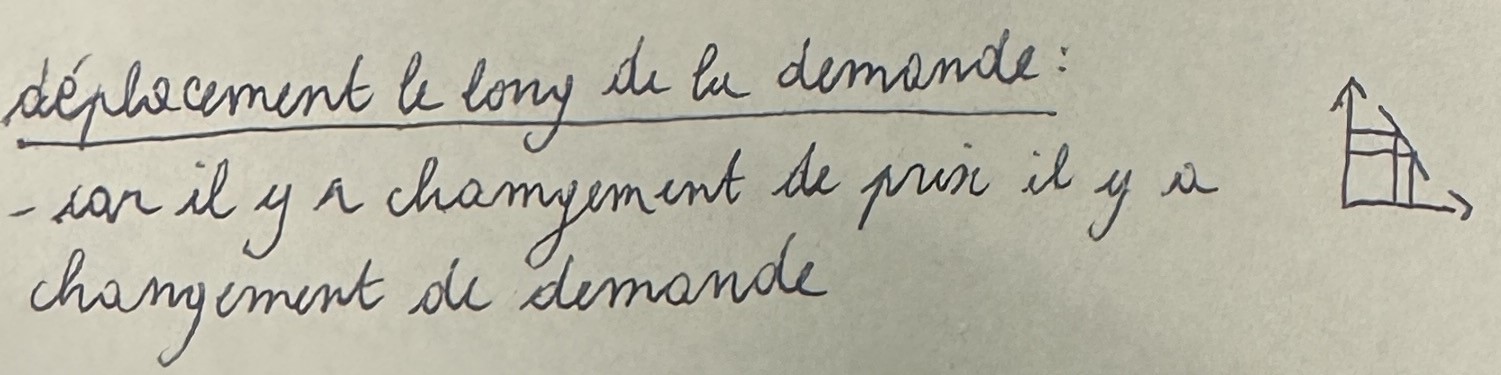 déplacement le long de la demande:
- car il y a changement de prix il y a
changement de demande